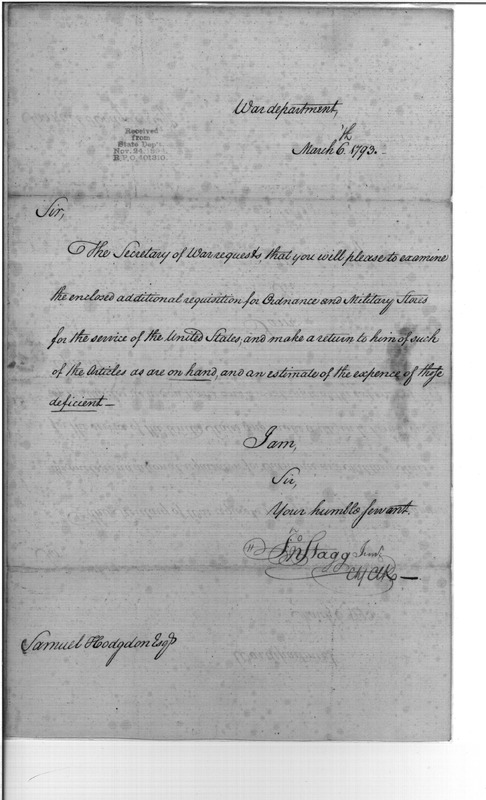 War department,
March 6th. 1793.
Received
from
State Dep't.
Nov. 24,
R.P.O. 401310.
Sir,
The Secretary of War requests, that you will please to examine
the enclosed additional requisition for Ordnance and Military Stores
for the service of the United States, and make a return to him of such
of the Articles as are on hand, and an estimate of the expence of those
deficient —
I am,
Sir,
Your humble servant.
Jno Stagg Junr.
Chf Clk —
Samuel Hodgdon Esqr